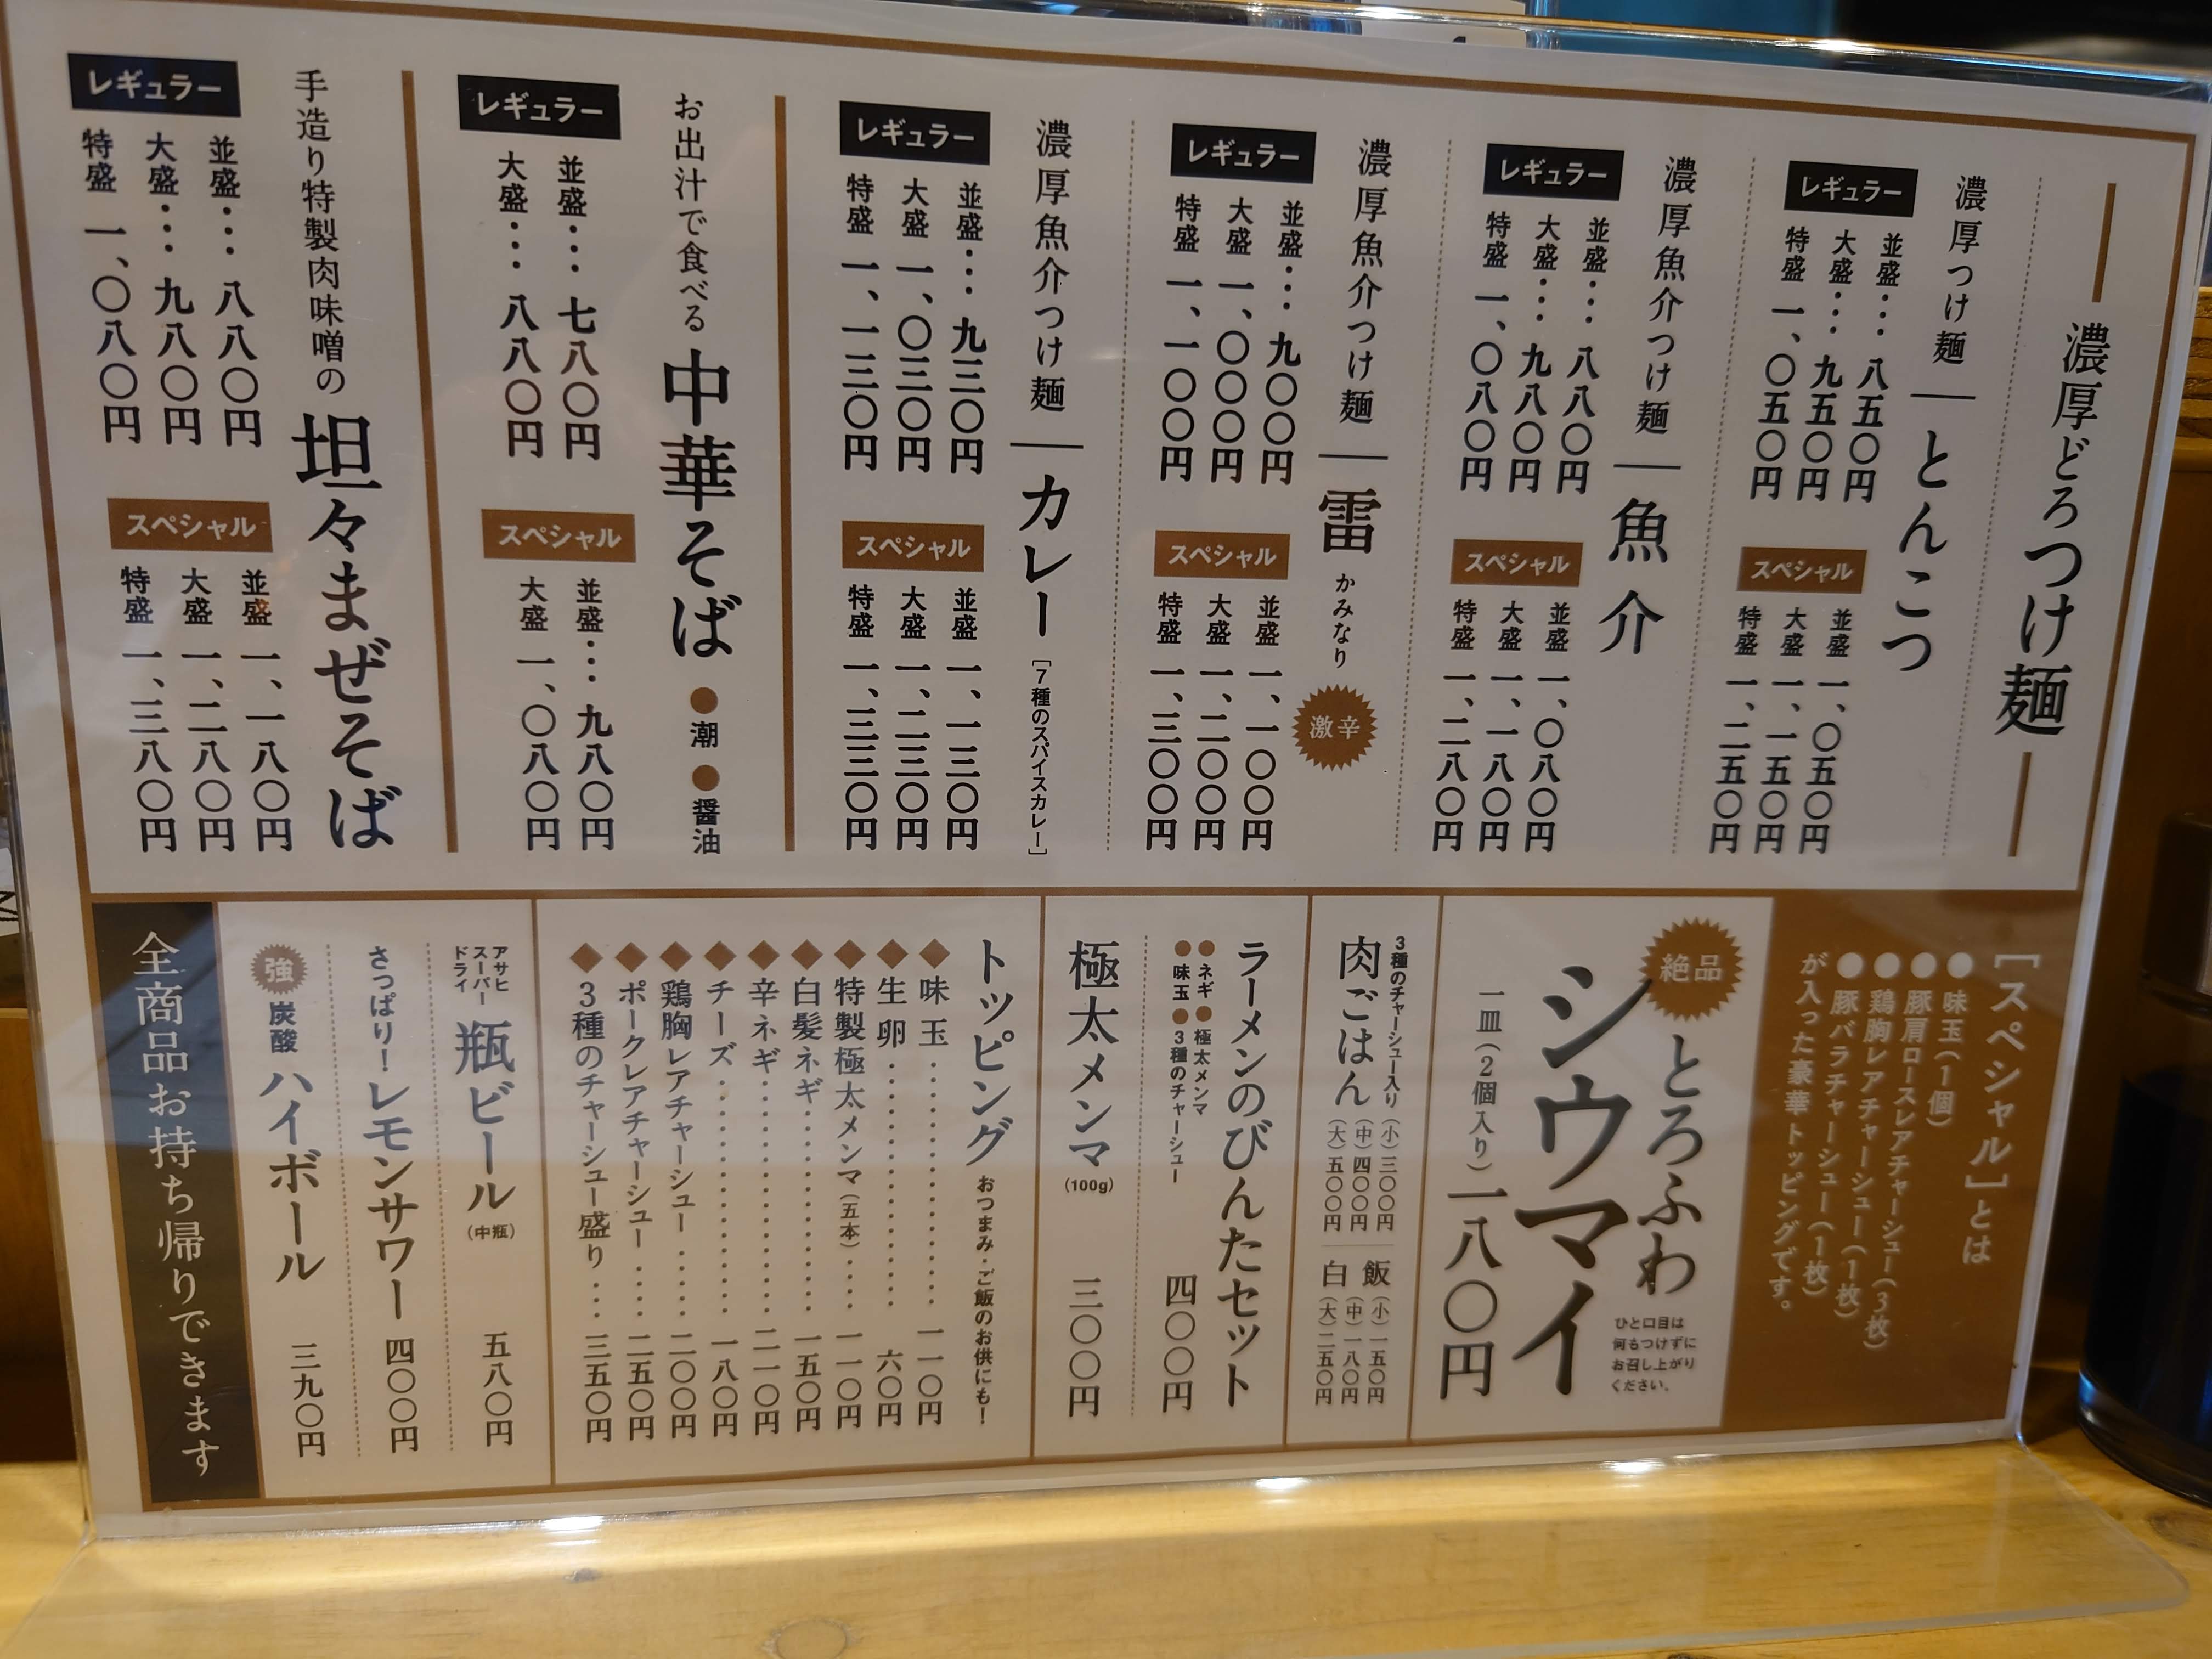 濃厚どろつけ麺
濃厚つけ麺―とんこつ
レギュラー
並盛…八五〇円
大盛…九五〇円
特盛 一、〇五〇円
スペシャル
並盛 一、〇五〇円
大盛 一、一五〇円
特盛 一、二五〇円
濃厚魚介つけ麺―魚介
レギュラー
並盛…八八〇円
大盛…九八〇円
特盛 一、〇八〇円
スペシャル
並盛 一、〇八〇円
大盛 一、一八〇円
特盛 一、二八〇円
濃厚魚介つけ麺―雷 かみなり 激辛
レギュラー
並盛…九〇〇円
大盛 一、〇〇〇円
特盛 一、一〇〇円
スペシャル
並盛 一、一〇〇円
大盛 一、二〇〇円
特盛 一、三〇〇円
濃厚魚介つけ麺―カレー [7種のスパイスカレー]
レギュラー
並盛…九三〇円
大盛 一、〇三〇円
特盛 一、一三〇円
スペシャル
並盛 一、一三〇円
大盛 一、二三〇円
特盛 一、三三〇円
お出汁で食べる 中華そば ●潮 ●醤油
レギュラー
並盛…七八〇円
大盛…八八〇円
スペシャル
並盛…九八〇円
大盛 一、〇八〇円
手造り特製肉味噌の 坦々まぜそば
レギュラー
並盛…八八〇円
大盛…九八〇円
特盛 一、〇八〇円
スペシャル
並盛 一、一八〇円
大盛 一、二八〇円
特盛 一、三八〇円
[スペシャル]とは
●味玉(1個)
●豚肩ロースレアチャーシュー(3枚)
●鶏胸レアチャーシュー(1枚)
●豚バラチャーシュー(1枚)
が入った豪華トッピングです。
絶品
とろふわ
シウマイ
ひと口目は
何もつけずに
お召し上がり
ください。
一皿(2個入り)一八〇円
3種のチャーシュー入り
肉ごはん
(小)三〇〇円
(中)四〇〇円
(大)五〇〇円
白飯
(小)一五〇円
(中)一八〇円
(大)二五〇円
ラーメンのびんたセット
●ネギ ●極太メンマ
●味玉 ●3種のチャーシュー
四〇〇円
極太メンマ(100g) 三〇〇円
トッピング おつまみ・ご飯のお供にも!
◆味玉……一一〇円
◆生卵……六〇円
◆特製極太メンマ(五本)……一一〇円
◆白髪ネギ……一五〇円
◆辛ネギ……二一〇円
◆チーズ……一八〇円
◆鶏胸レアチャーシュー……二〇〇円
◆ポークレアチャーシュー……二五〇円
◆3種のチャーシュー盛り……三五〇円
アサヒ
スーパー
ドライ
瓶ビール(中瓶) 五八〇円
さっぱり!レモンサワー 四〇〇円
強炭酸ハイボール 三九〇円
全商品お持ち帰りできます